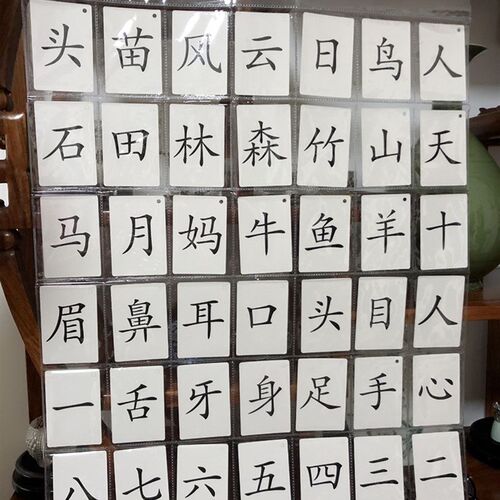 头 苗 风 云 日 鸟 人
石 田 林 森 竹 山 天
马 月 妈 牛 鱼 羊 十
眉 鼻 耳 口 头 目 人
一 舌 牙 身 足 手 心
八 七 六 五 四 三 二